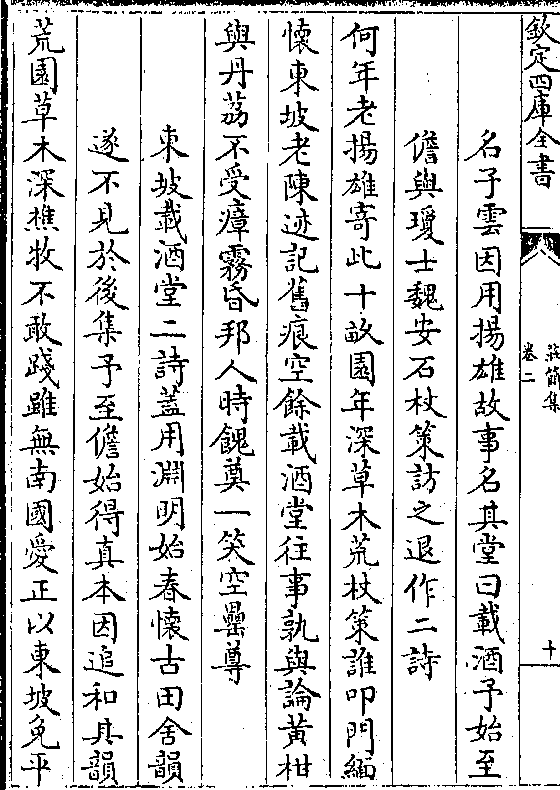 欽定四庫全書
莊簡集
卷二
十
名子雲因用揚雄故事名其堂曰載酒予始至
儋與瓊士魏安石杖策訪之退作二詩
何年老揚雄寄此十畝園年深草木荒杖策誰叩門緬
懷東坡老陳迹記舊痕空餘載酒堂往事孰與論黄柑
與丹荔不受瘴霧昏邦人時餽奠一笑空罍尊
東坡載酒堂二詩蓋用淵明始春懷古田舍韻
遂不見於後集予至儋始得真本因追和其韻
荒園草木深樵牧不敢踐雖無南國愛正以東坡免平